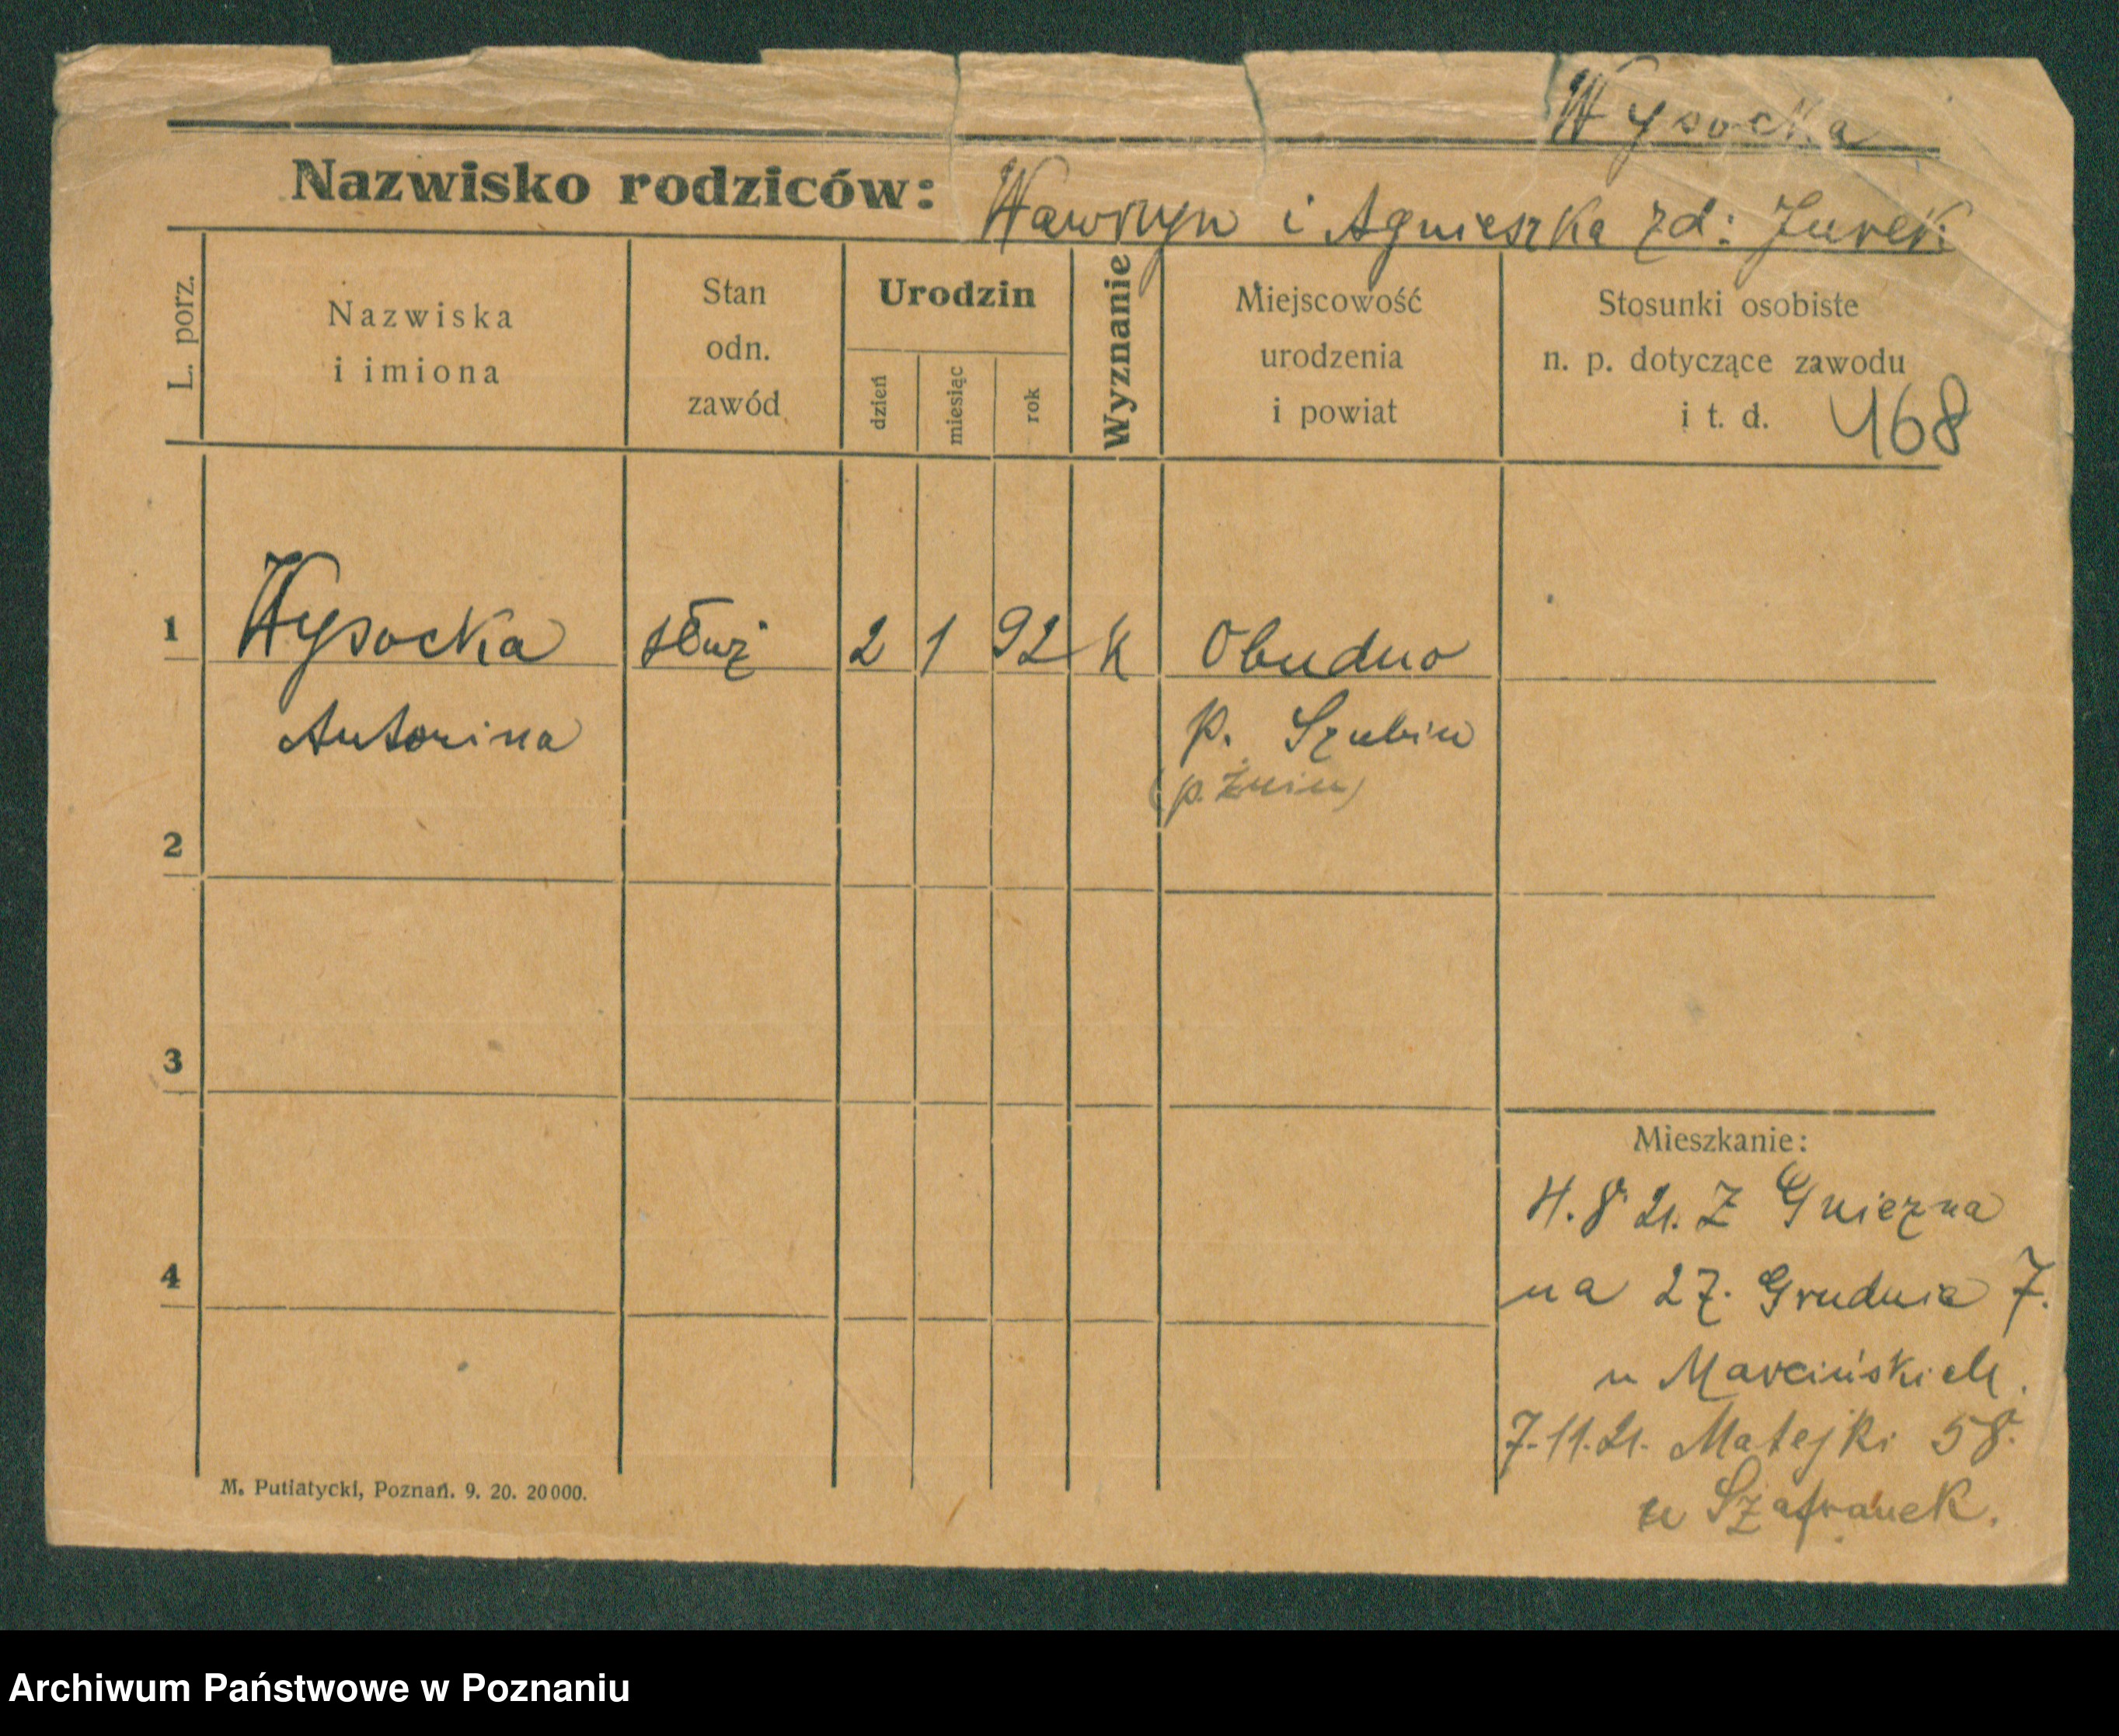 Wysocka
Nazwisko rodziców: Wawrzyn i Agnieszka zd: Jurek
L. porz.
Nazwiska
i imiona
Stan
odn.
zawód
Urodzin
dzień
miesiąc
rok
Wyznanie
Miejscowość
urodzenia
i powiat
Stosunki osobiste
n. p. dotyczące zawodu
i t. d. 468
1 Wysocka służ 2 1 92 K Obudno
Antonina p. Szubin
(p. Żnin)
2
3
Mieszkanie:
4.8.21. Z Gniezna
4 na 27. Grudnia 7.
u Marcińskich.
7.11.21. Matejki 58.
u Szafranek.
M. Putiatycki, Poznań. 9. 20. 20000.
Archiwum Państwowe w Poznaniu